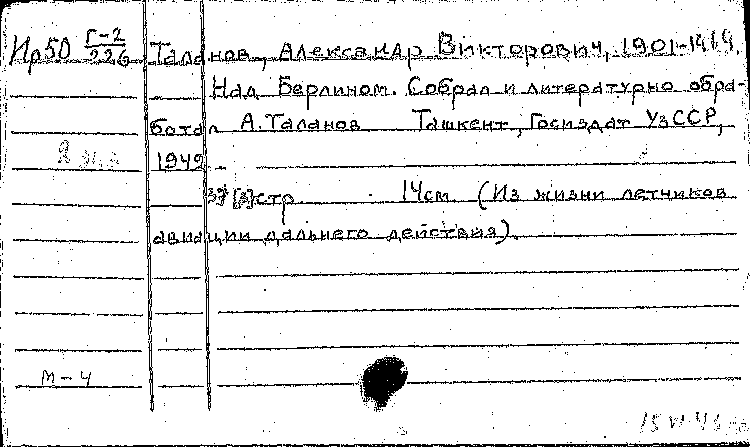 Ир50 Г-2/226 Таланов, Александр Викторович, 1901-1969.
Над Берлином. Собрал и литературно обра-
ботал А. Таланов Ташкент, Госиздат УзССР,
2 экз 1942.
37 [3] стр. 14см. (Из жизни летчиков
авиации дальнего действия).
М-4